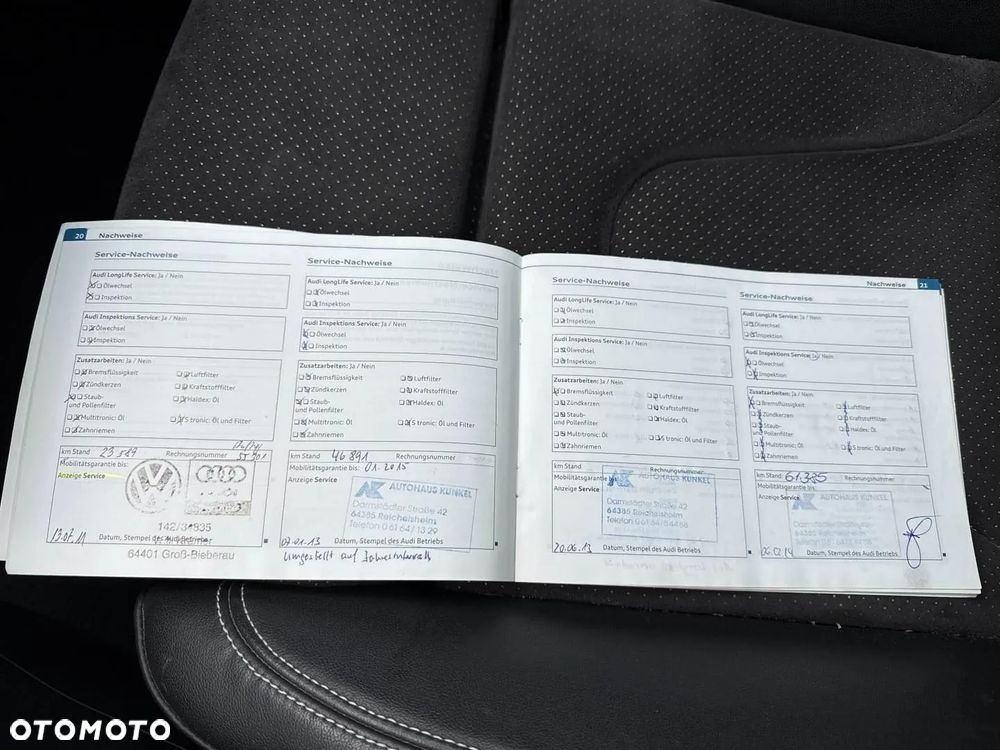 20 Nachweise
Service-Nachweise
Audi LongLife Service: Ja / Nein
Ölwechsel
Inspektion
Audi Inspektions Service: Ja / Nein
Ölwechsel
Inspektion
Zusatzarbeiten: Ja / Nein
Bremsflüssigkeit
Luftfilter
Zündkerzen
Kraftstofffilter
Staub-
und Pollenfilter
Haldex: Öl
Multitronic: Öl
S tronic: Öl und Filter
Zahnriemen
km Stand 23 589 Rechnungsnummer
Mobilitätsgarantie bis:
Anzeige Service
142/31835
64401 Groß-Bieberau
13.07.11 Datum, Stempel des Audi Betriebs
Service-Nachweise
Audi LongLife Service: Ja / Nein
Ölwechsel
Inspektion
Audi Inspektions Service: Ja / Nein
Ölwechsel
Inspektion
Zusatzarbeiten: Ja / Nein
Bremsflüssigkeit
Luftfilter
Zündkerzen
Kraftstofffilter
Staub-
und Pollenfilter
Haldex: Öl
Multitronic: Öl
S tronic: Öl und Filter
Zahnriemen
km Stand 46 891 Rechnungsnummer
Mobilitätsgarantie bis: 01.2015
Anzeige Service
AK AUTOHAUS KUNKEL
Darmstädter Straße 42
64385 Reichelsheim
Telefon 0 61 64/ 13 29
07.01.13 Datum, Stempel des Audi Betriebs
umgestellt auf
Nachweise 21
Service-Nachweise
Audi LongLife Service: Ja / Nein
Ölwechsel
Inspektion
Audi Inspektions Service: Ja / Nein
Ölwechsel
Inspektion
Zusatzarbeiten: Ja / Nein
Bremsflüssigkeit
Luftfilter
Zündkerzen
Kraftstofffilter
Staub-
und Pollenfilter
Haldex: Öl
Multitronic: Öl
S tronic: Öl und Filter
Zahnriemen
km Stand Rechnungsnummer
Mobilitätsgarantie bis:
Anzeige Service
AK AUTOHAUS KUNKEL
Darmstädter Straße 42
64385 Reichelsheim
20.06.13 Datum, Stempel des Audi Betriebs
Service-Nachweise
Audi LongLife Service: Ja / Nein
Ölwechsel
Inspektion
Audi Inspektions Service: Ja / Nein
Ölwechsel
Inspektion
Zusatzarbeiten: Ja / Nein
Bremsflüssigkeit
Luftfilter
Zündkerzen
Kraftstofffilter
Staub-
und Pollenfilter
Haldex: Öl
Multitronic: Öl
S tronic: Öl und Filter
Zahnriemen
km Stand 61.385 Rechnungsnummer
Mobilitätsgarantie bis:
Anzeige Service
AUTOHAUS KUNKEL
Darmstädter Straße 42
64385 Reichelsheim
06.02.14 Datum, Stempel des Audi Betriebs
OTOMOTO